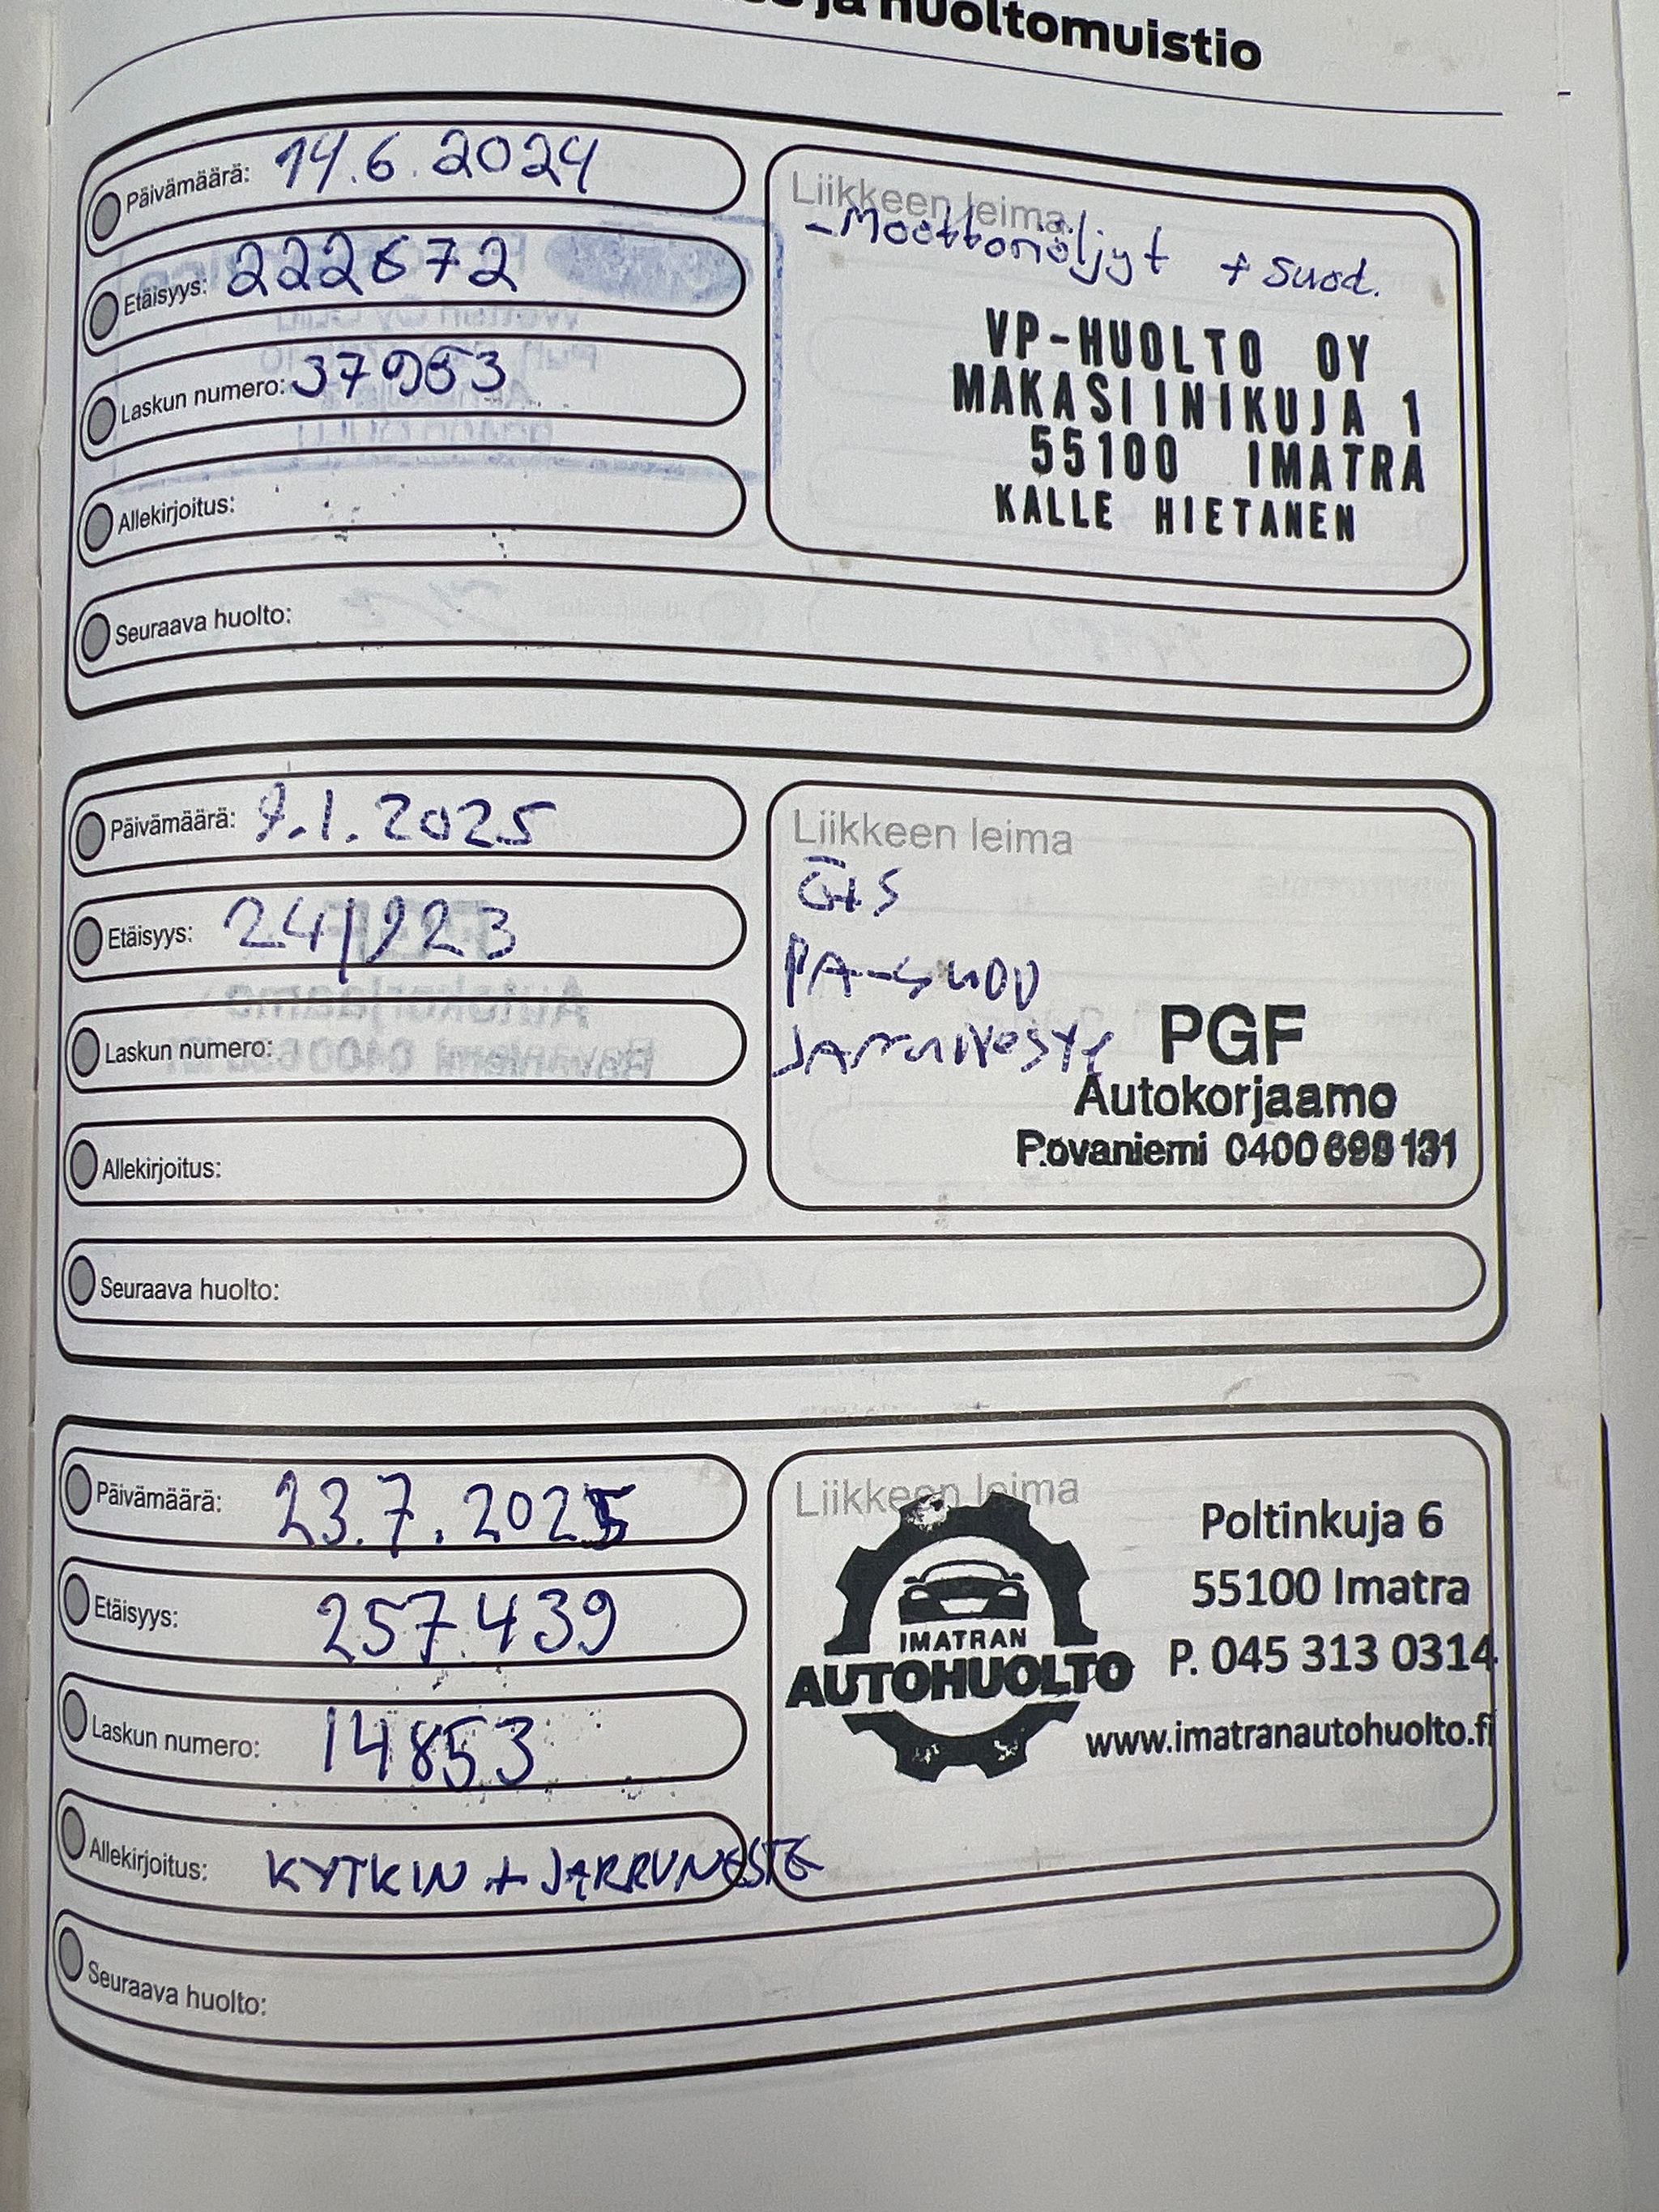 ja huoltomuistio
Päivämäärä: 14.6.2024
Etäisyys: 222672
Laskun numero: 37953
Allekirjoitus:
Seuraava huolto:
Liikkeen leima
-Moottoriöljyt + suod.
VP-HUOLTO OY
MAKASIINIKUJA 1
55100 IMATRA
KALLE HIETANEN
Päivämäärä: 9.1.2025
Etäisyys: 241923
Laskun numero:
Allekirjoitus:
Seuraava huolto:
Liikkeen leima
Ö+S
PA-SUOD
JARRUNESTE
PGF
Autokorjaamo
Rovaniemi 0400 131
Päivämäärä: 23.7.2025
Etäisyys: 257439
Laskun numero: 14853
Allekirjoitus: KYTKIN + JARRUNESTE
Seuraava huolto:
Liikkeen leima
IMATRAN
AUTOHUOLTO
Poltinkuja 6
55100 Imatra
P. 045 313 0314
www.imatranautohuolto.fi